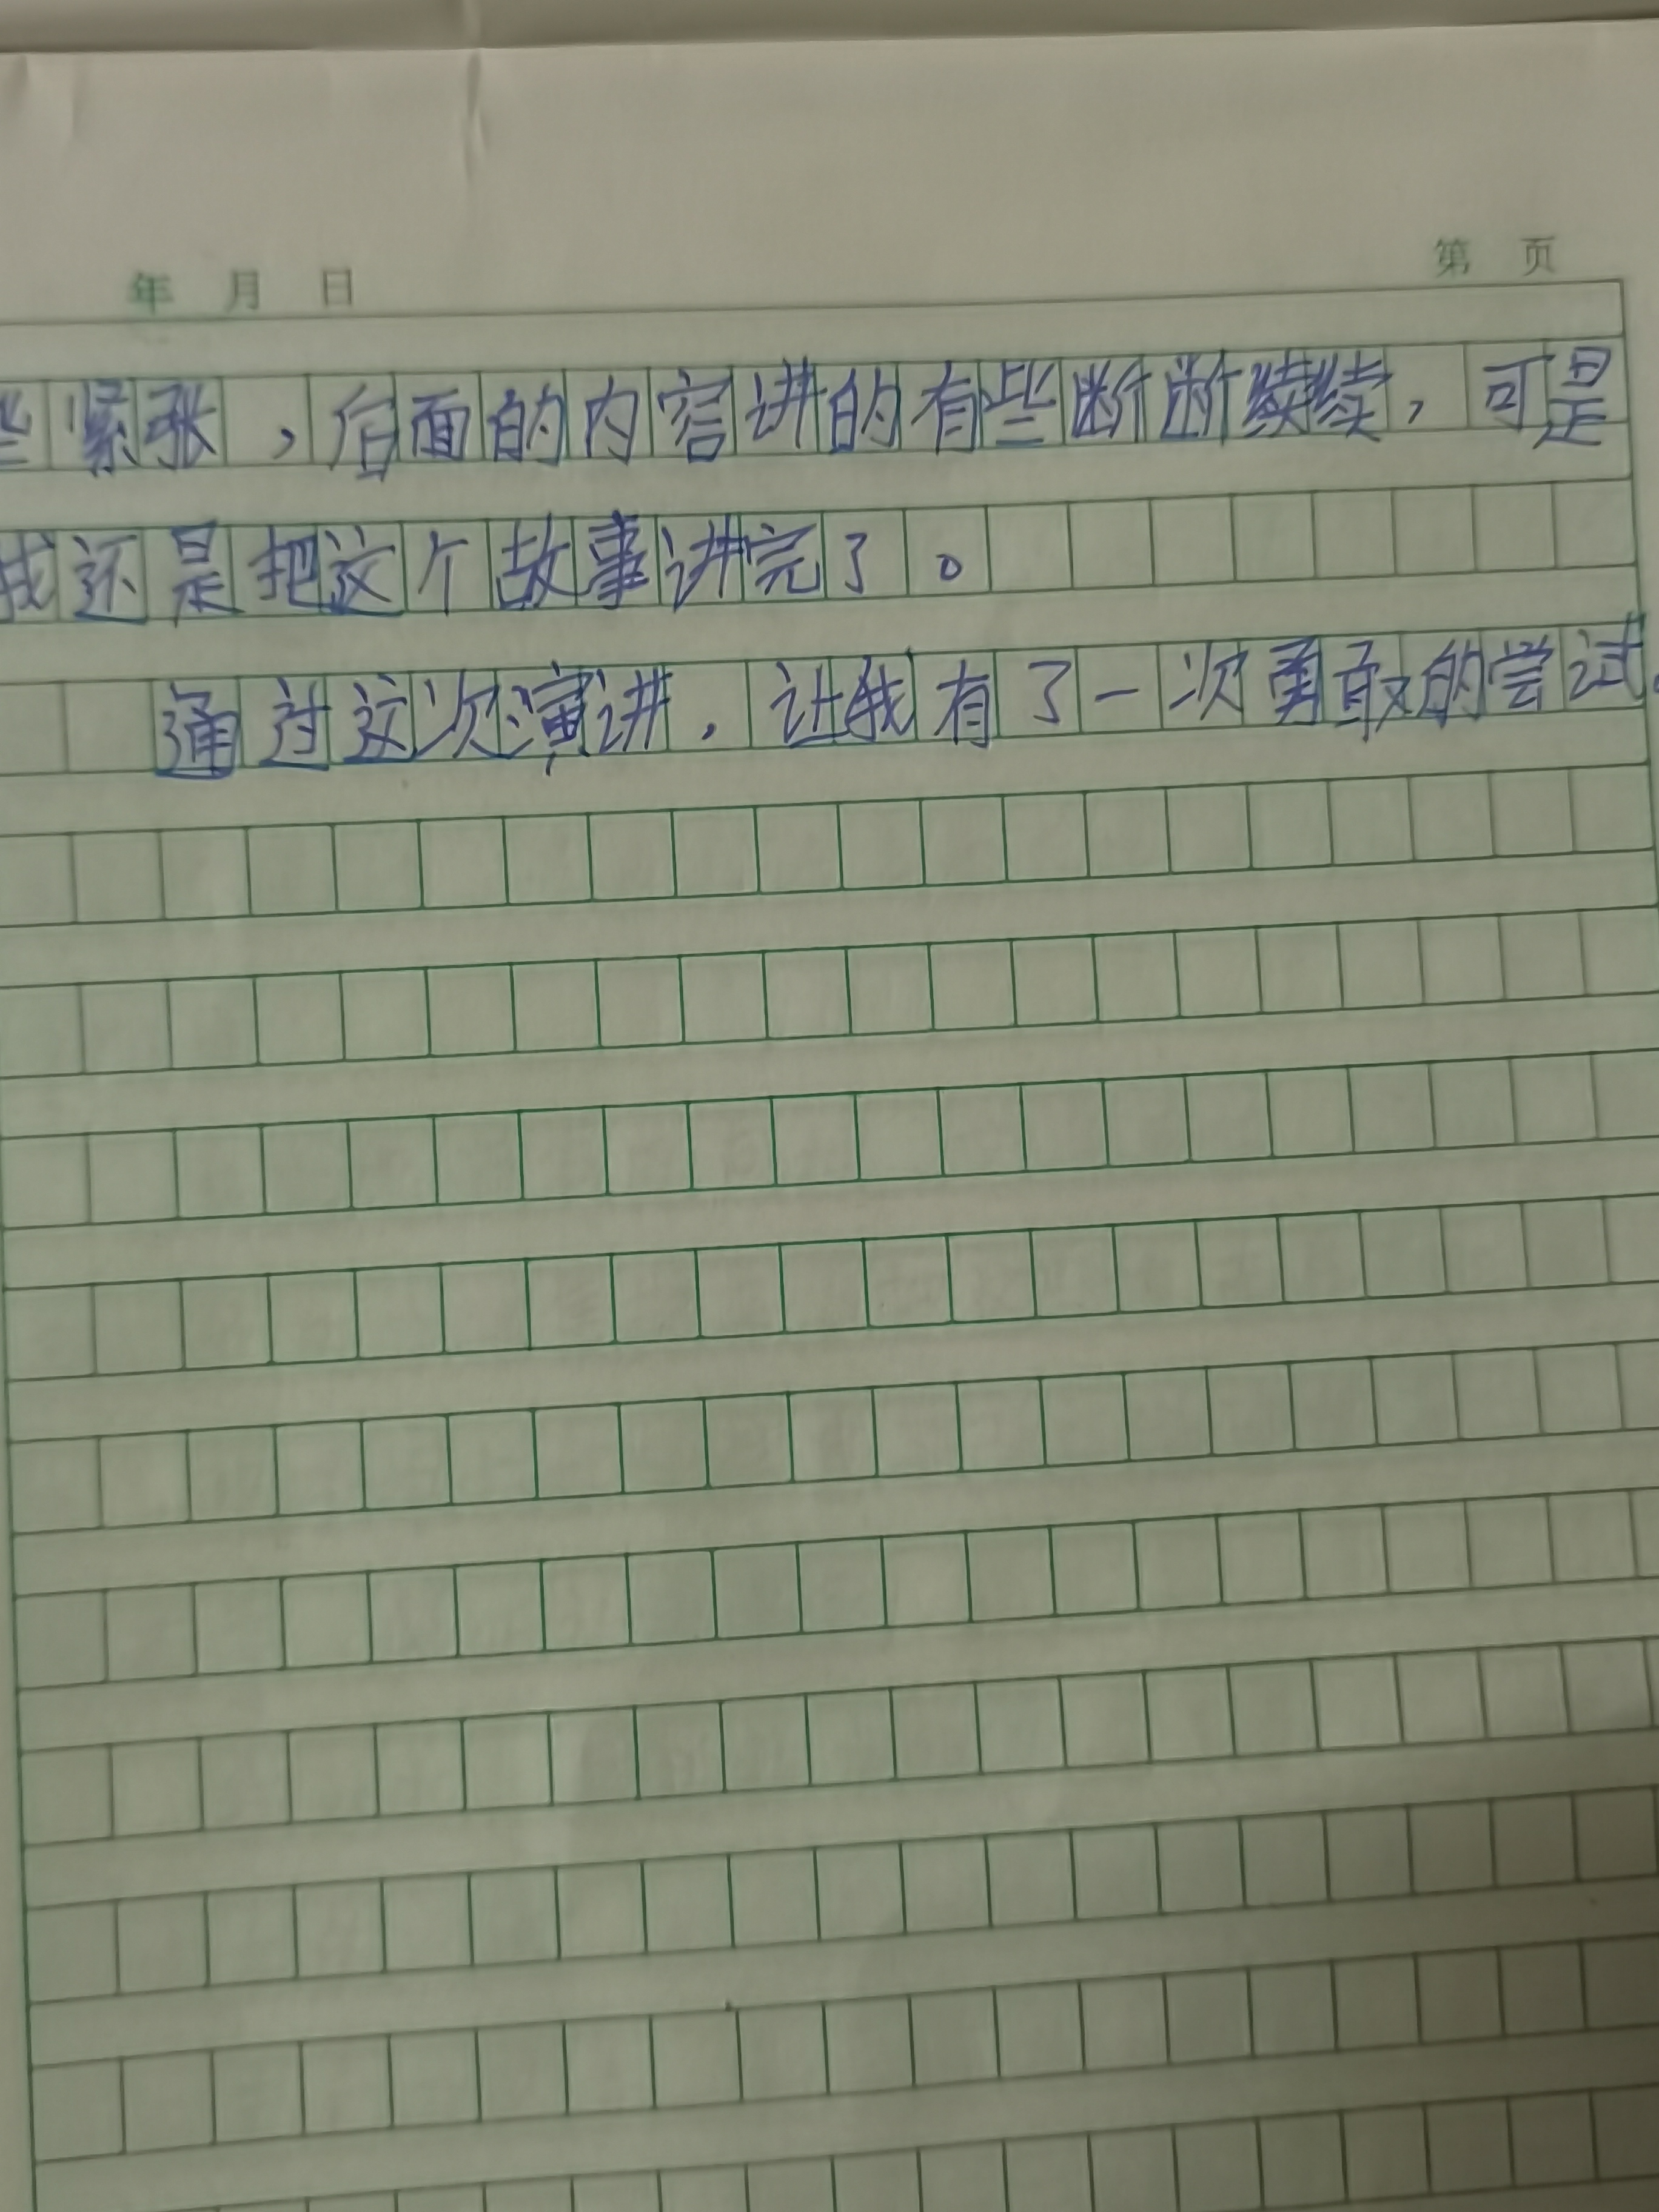 年 月 日
第 页
些紧张，后面的内容讲的有些断断续续，可是
我还是把这个故事讲完了。
通过这次演讲，让我有了一次勇敢的尝试。